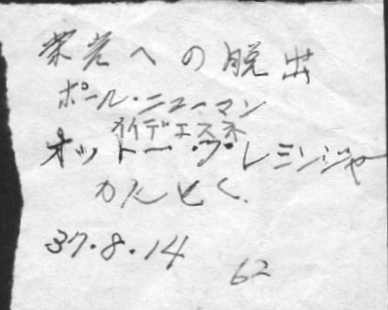 栄光への脱出
ポール・ニューマン
オイデエスネ
オットー・プレミンジャー
かんとく.
37.8.14
62